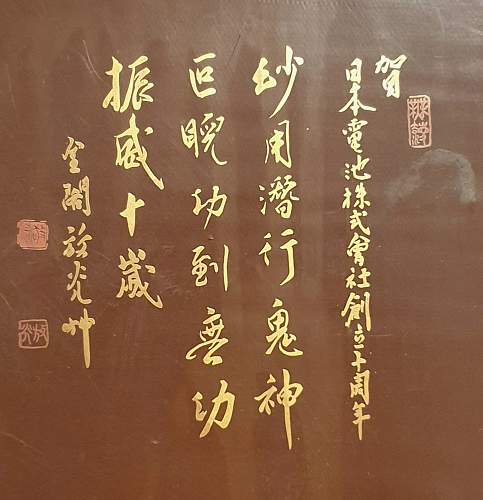 賀
日本電池株式會社創立十周年
妙用潛行鬼神
叵睨功到無功
振威十歳
金閣 艸